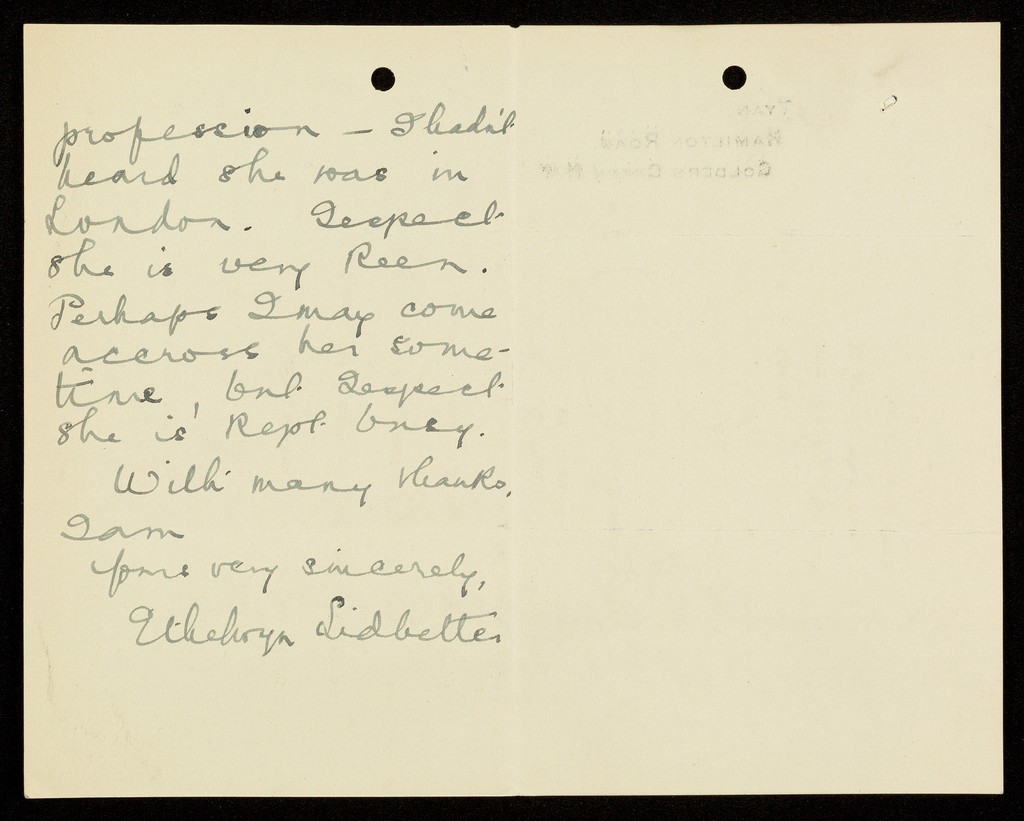 profession – I hadn't
heard she was in
London. I expect
she is very keen.
Perhaps I may come
accross her some-
time, but I expect
she is kept busy.
With many thanks,
I am
Yours very sincerely,
Ethelwyn Lidbetter
TYAN
HAMILTON ROAD
GOLDERS GREEN N.W